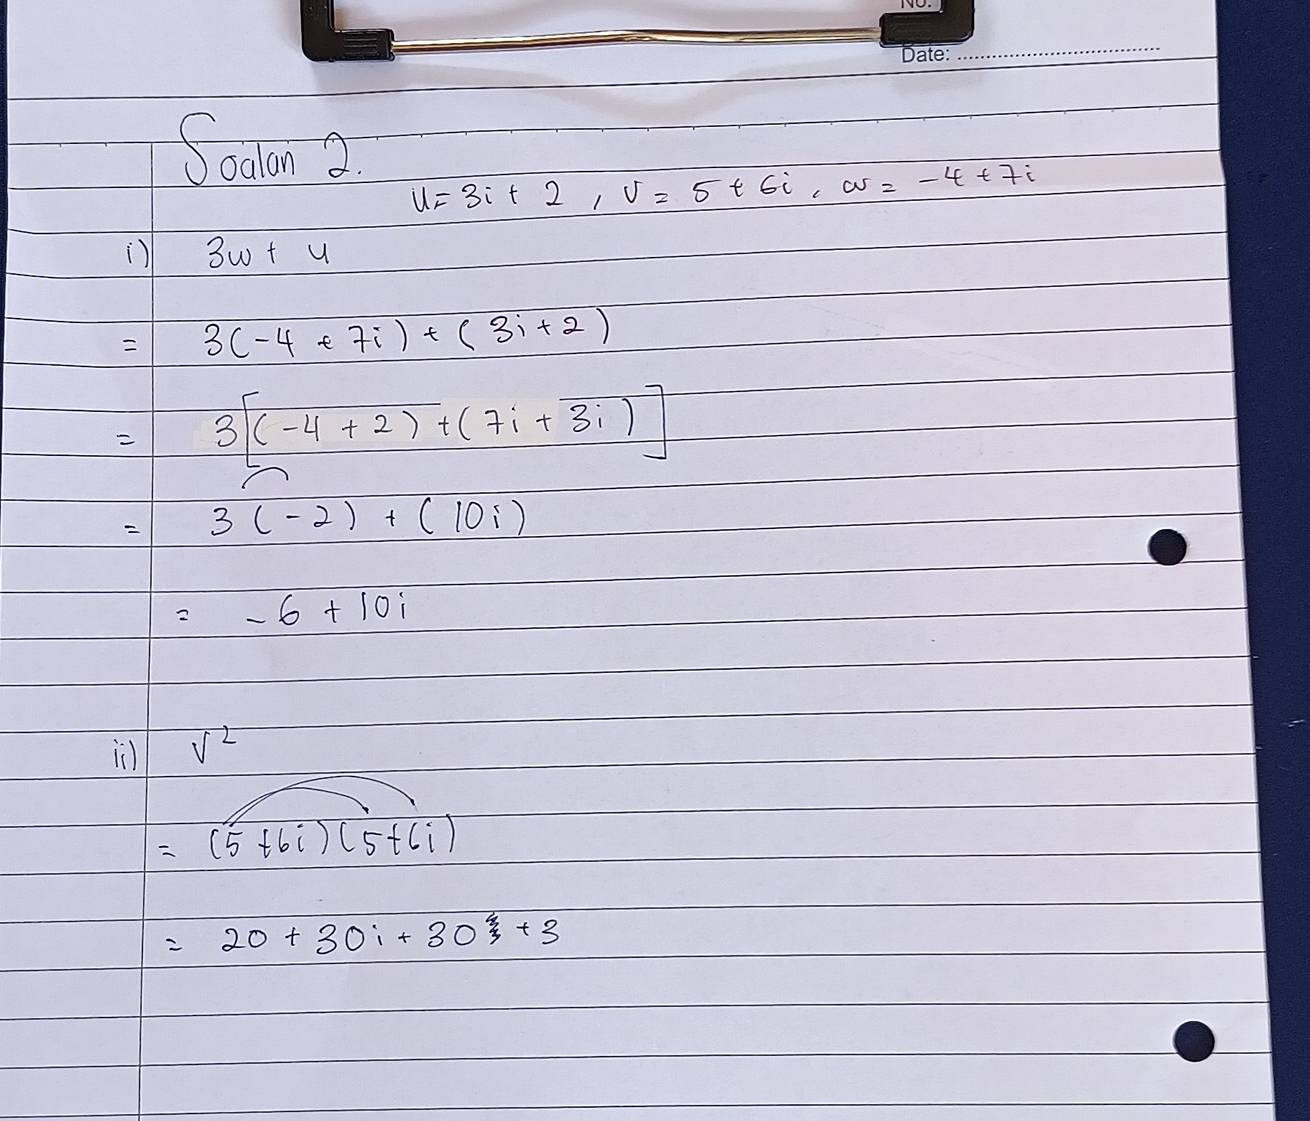 No.
Date:
Soalan 2.
u = 3i + 2 , v = 5 + 6i , w = -4 + 7i
i) 3w + u
= 3(-4 + 7i) + (3i+2)
= 3[(-4+2) + (7i + 3i)]
= 3(-2) + (10i)
= -6 + 10i
ii) v²
= (5+6i)(5+6i)
= 20 + 30i + 30 + 3